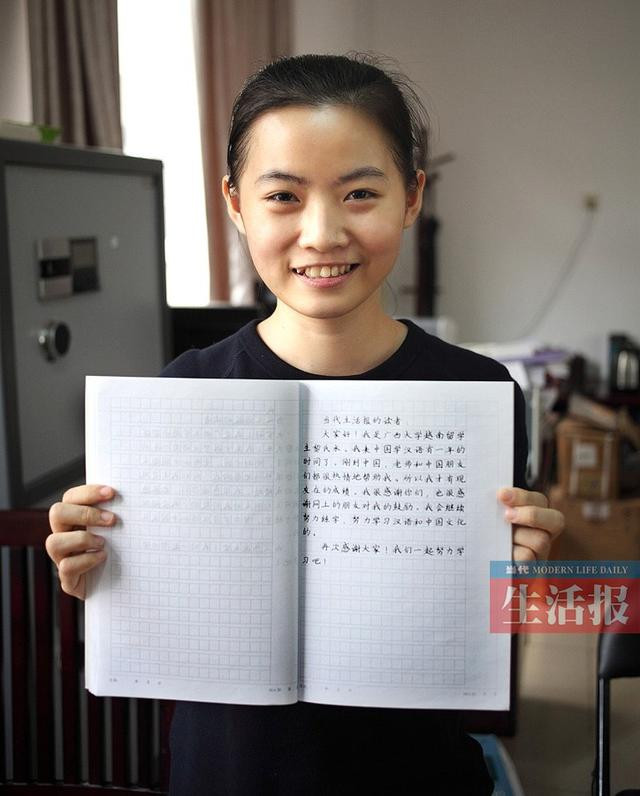 当代生活报的读者
大家好！我是广西大学越南留学
生黎氏禾。我来中国学汉语有一年的
时间了。刚到中国，老师和中国朋友
们都很热情地帮助我。所以我才有现
在的成绩，我很感谢你们，也很感
谢网上的朋友对我的鼓励。我会继续
努力练字，努力学习汉语和中国文化
的。
再次感谢大家！我们一起努力学
习吧！
当代 MODERN LIFE DAILY
生活报